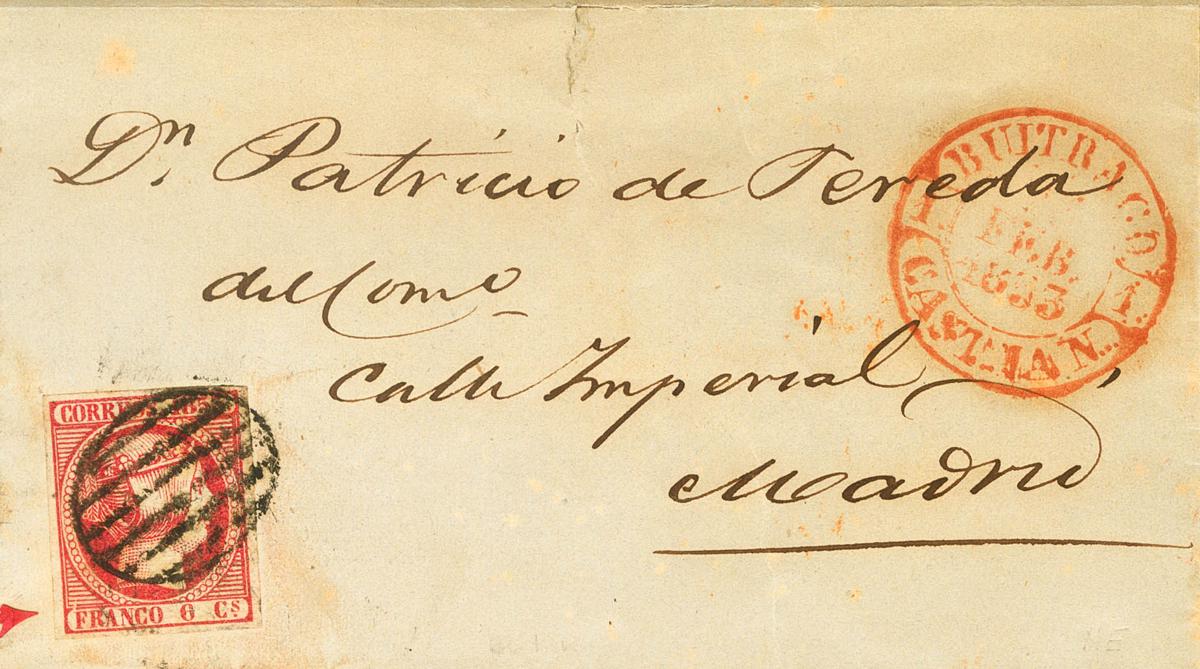 Dn. Patricio de Tereda
del Como
Calle Imperial
Madrid
BUITRAGO
FEB.
1853
CAST. LAN.
CORREOS 185
FRANCO 6 Cs